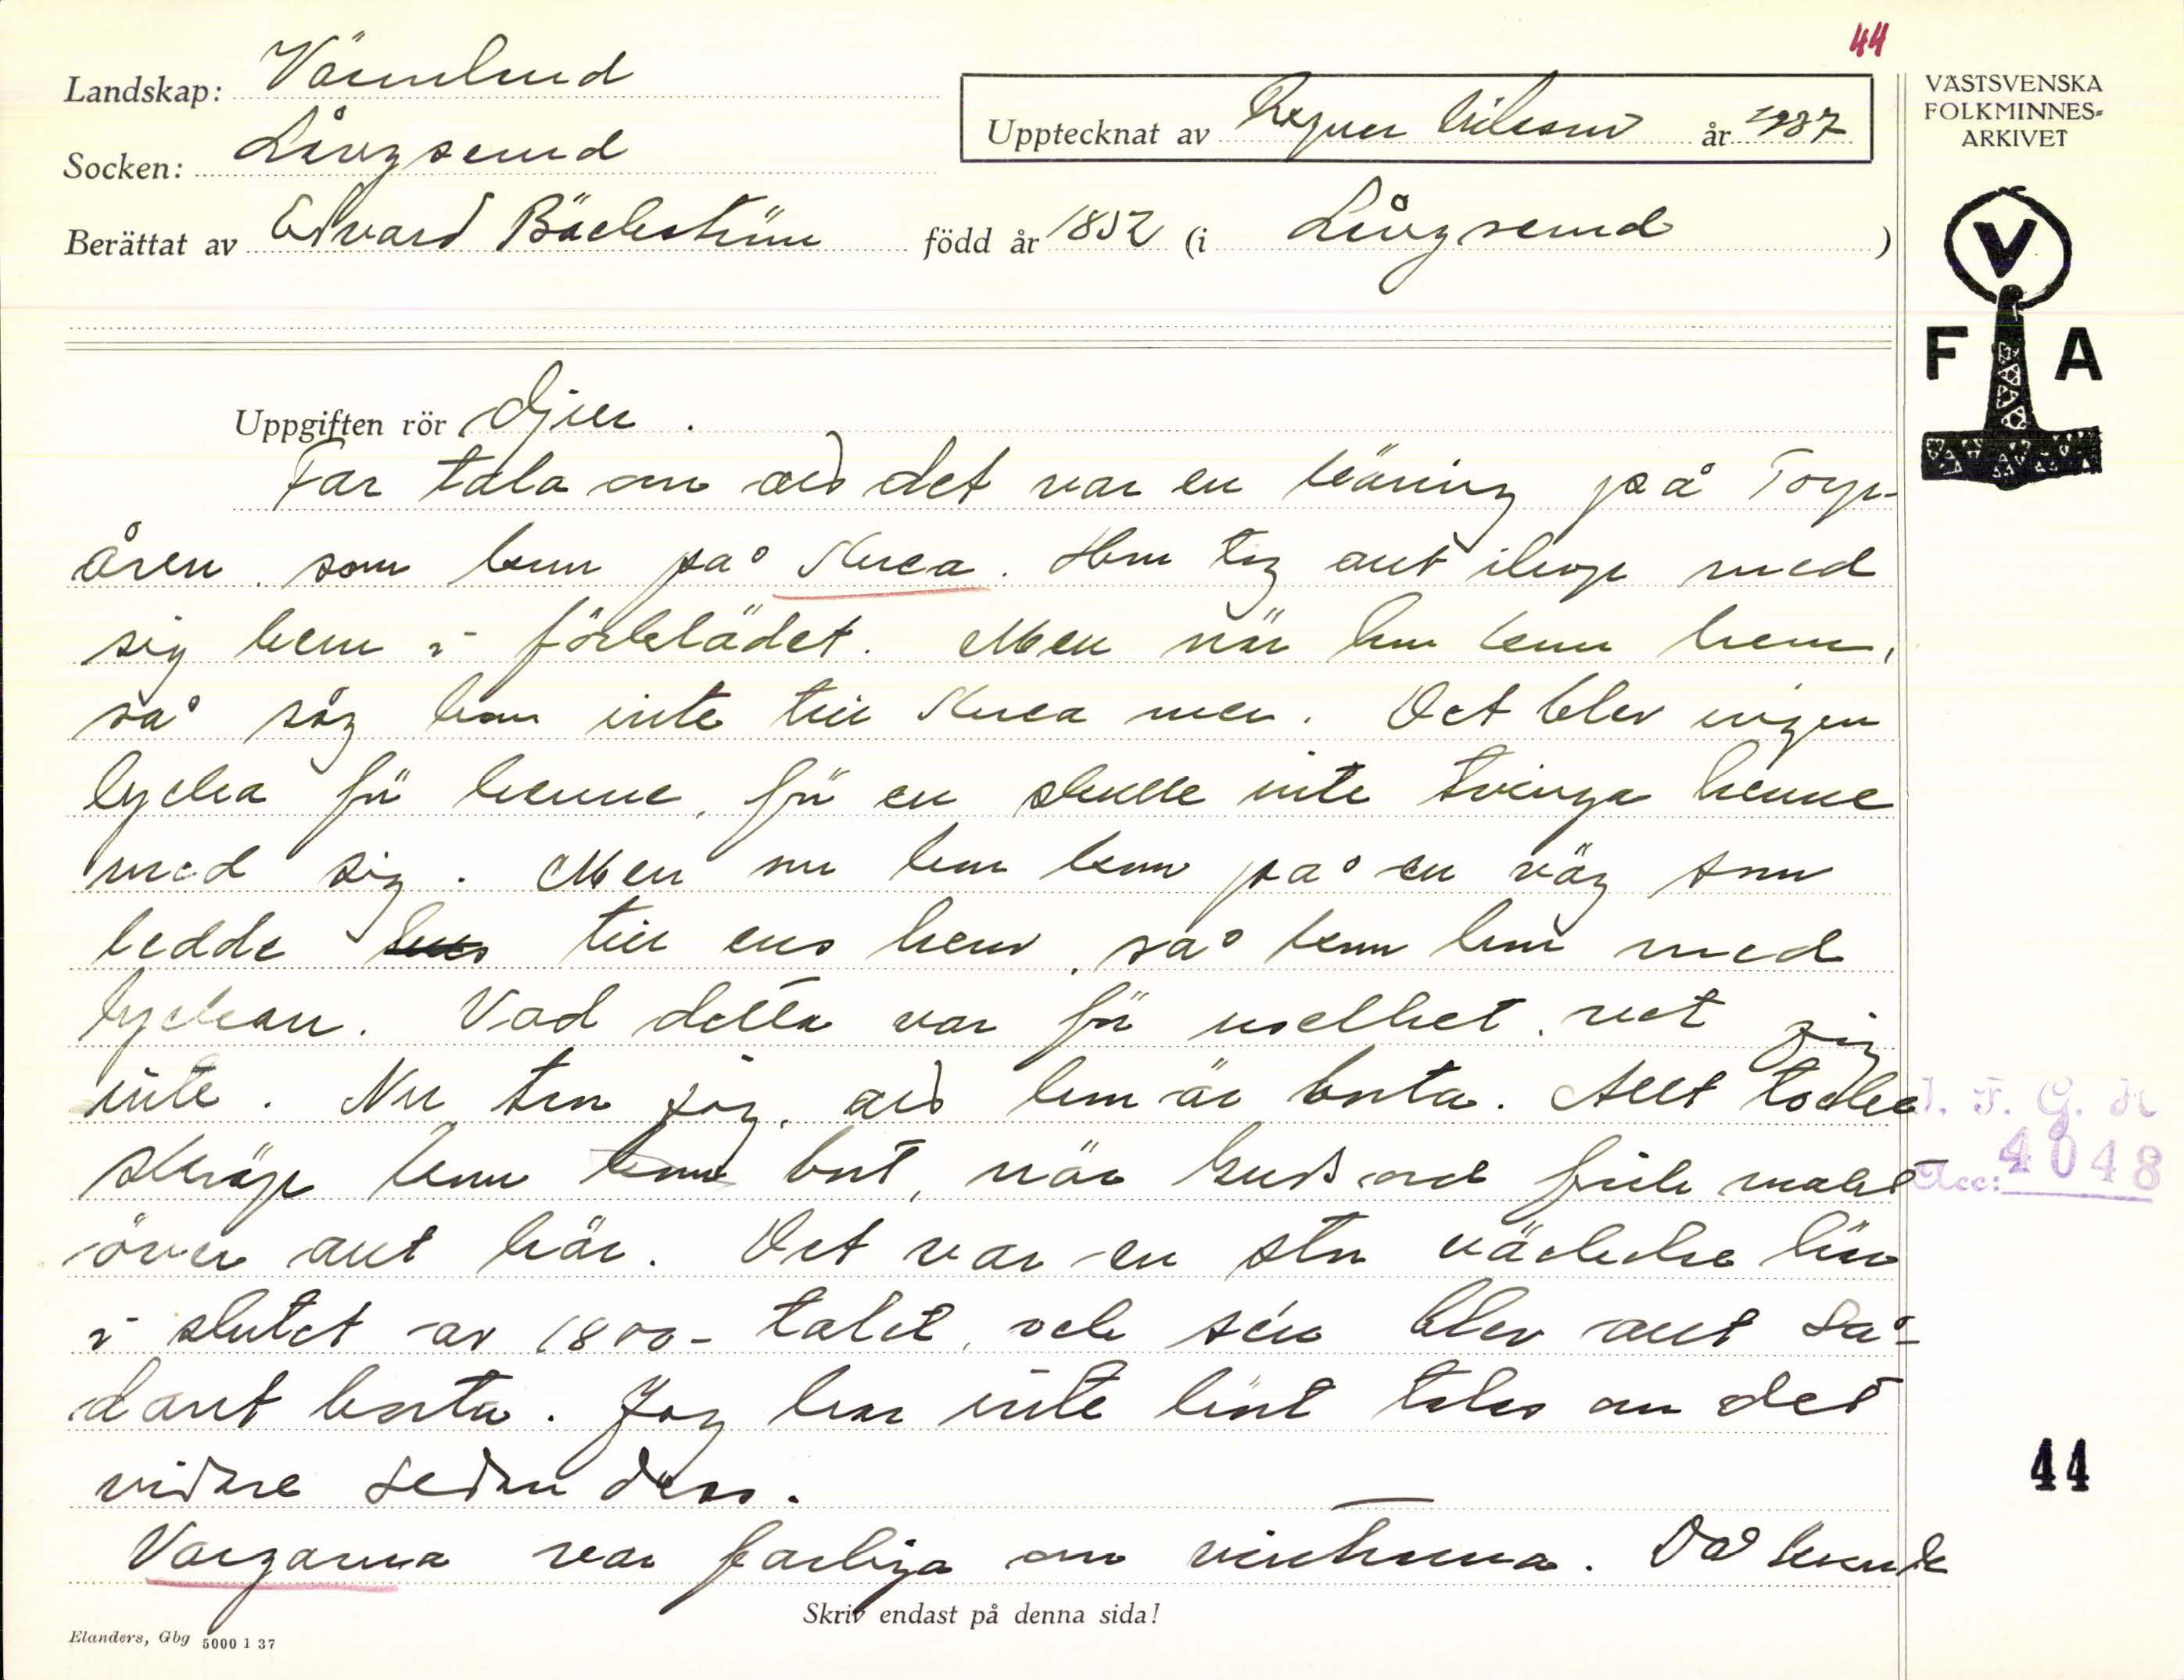 44
Landskap: Värmland
Socken: Långserud
Upptecknat av Ragnar Nilsson år 1937
Berättat av Edvard Bäckström född år 1852 (i Långserud)
VÄSTSVENSKA
FOLKMINNES-
ARKIVET
V
F A
Uppgiften rör djur.
Far tala om ad det var en käring på Torp-
åsen som kom på Snoa. Hon tog allt ihop med
sig hem i förklädet. Men när hon kom hem,
så såg hon inte till Snoa mer. Det blev ingen
lycka för henne, för en skulle inte tvinga henne
med sig. Men om hon kom på en väg som
ledde till ens hem, så kom hon med
lyckan. Vad detta var för uselhet vet jag
inte. Nu tror jag, ad hon är borta. Allt tocke
skräp kom bort, när Guds ord fick makt
över allt här. Det var en stor väckelse här
i slutet av 1800-talet, och sen blev allt så-
dant borta. Jag har inte hört talas om det
vidare sedan dess.
Vargarna var farliga om vintrarna. Då kunde
I. F. G. H
Acc: 4048
44
Skriv endast på denna sida!
Elanders, Gbg 5000 1 37